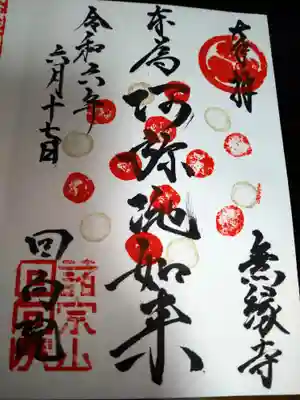 奉拝
無縁寺
本尊 阿弥陀如来
令和六年
六月十七日
回向院
諸宗山